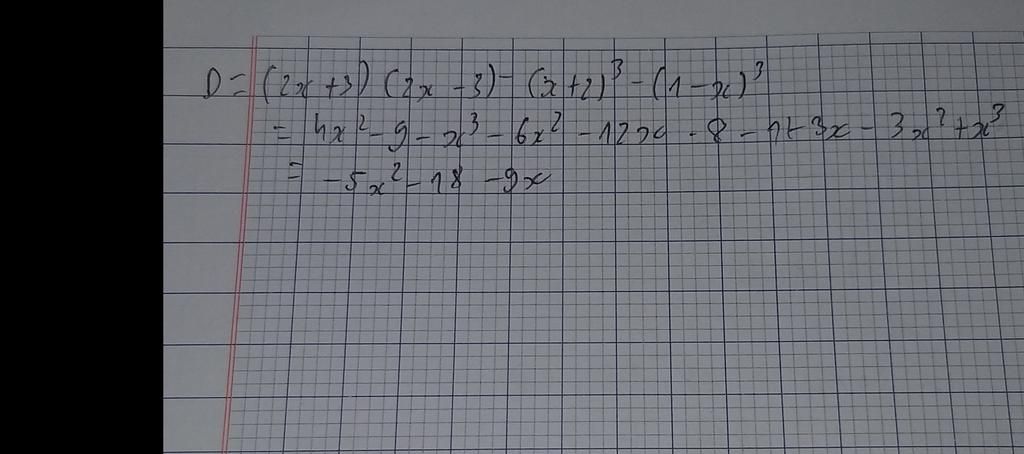 D = (2x + 3) (2x - 3) - (x + 2)³ - (1 - x)³
= 4x² - 9 - x³ - 6x² - 12x - 8 - 1 + 3x - 3x² + x³
= -5x² - 18 - 9x